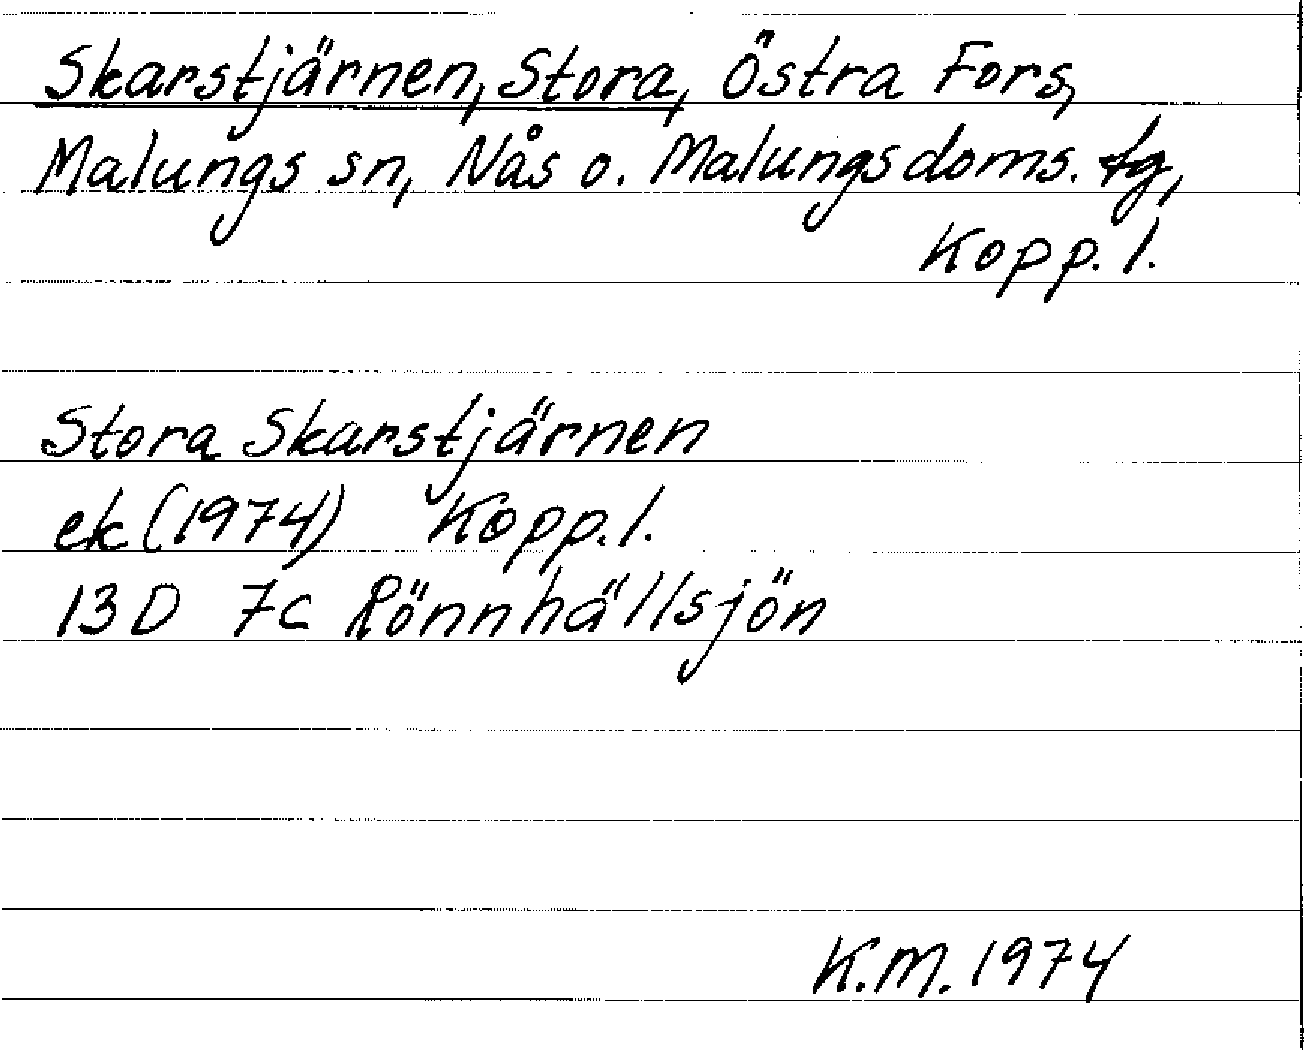 Skarstjärnen, Stora, Östra Fors,
Malungs sn, Nås o. Malungs doms. tg,
Kopp. l.
Stora Skarstjärnen
ek (1974) Kopp. l.
13D 7c Rönnhällsjön
K.M. 1974